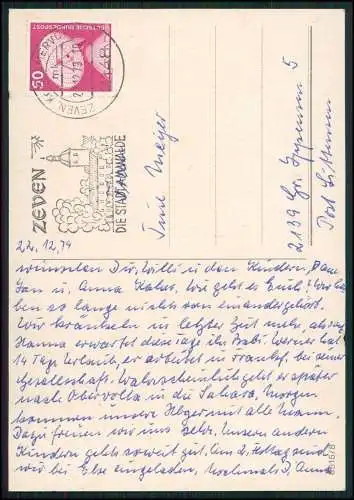 50
DEUTSCHE BUNDESPOST
ZEVEN
ZEVEN
DIE STADT AM WALDE
Tine Meyer
2139 Gr. Ippensen 5
Post Sittensen
22.12.79
wünschen Dir, Willi u den Kindern,
Jan u. Anna Wie geht es Euch? Wir ha
ben so lange nichts von einander gehört.
Wir in letzter Zeit mehr, als
Hanna erwartet diese Tage ihr Baby. Werner hat
14 Tage Urlaub, er arbeitet in Frankf. bei einer
Gesellschaft. Wahrscheinlich geht er später
nach in die Sahara. Morgen
kommen unsere mit alle Mann.
Dazu freuen wir uns sehr. Unsern andern
Kindern geht's soweit gut. Am 2. Festtag sind
wir bei Else eingeladen. Nochmals D. Anna